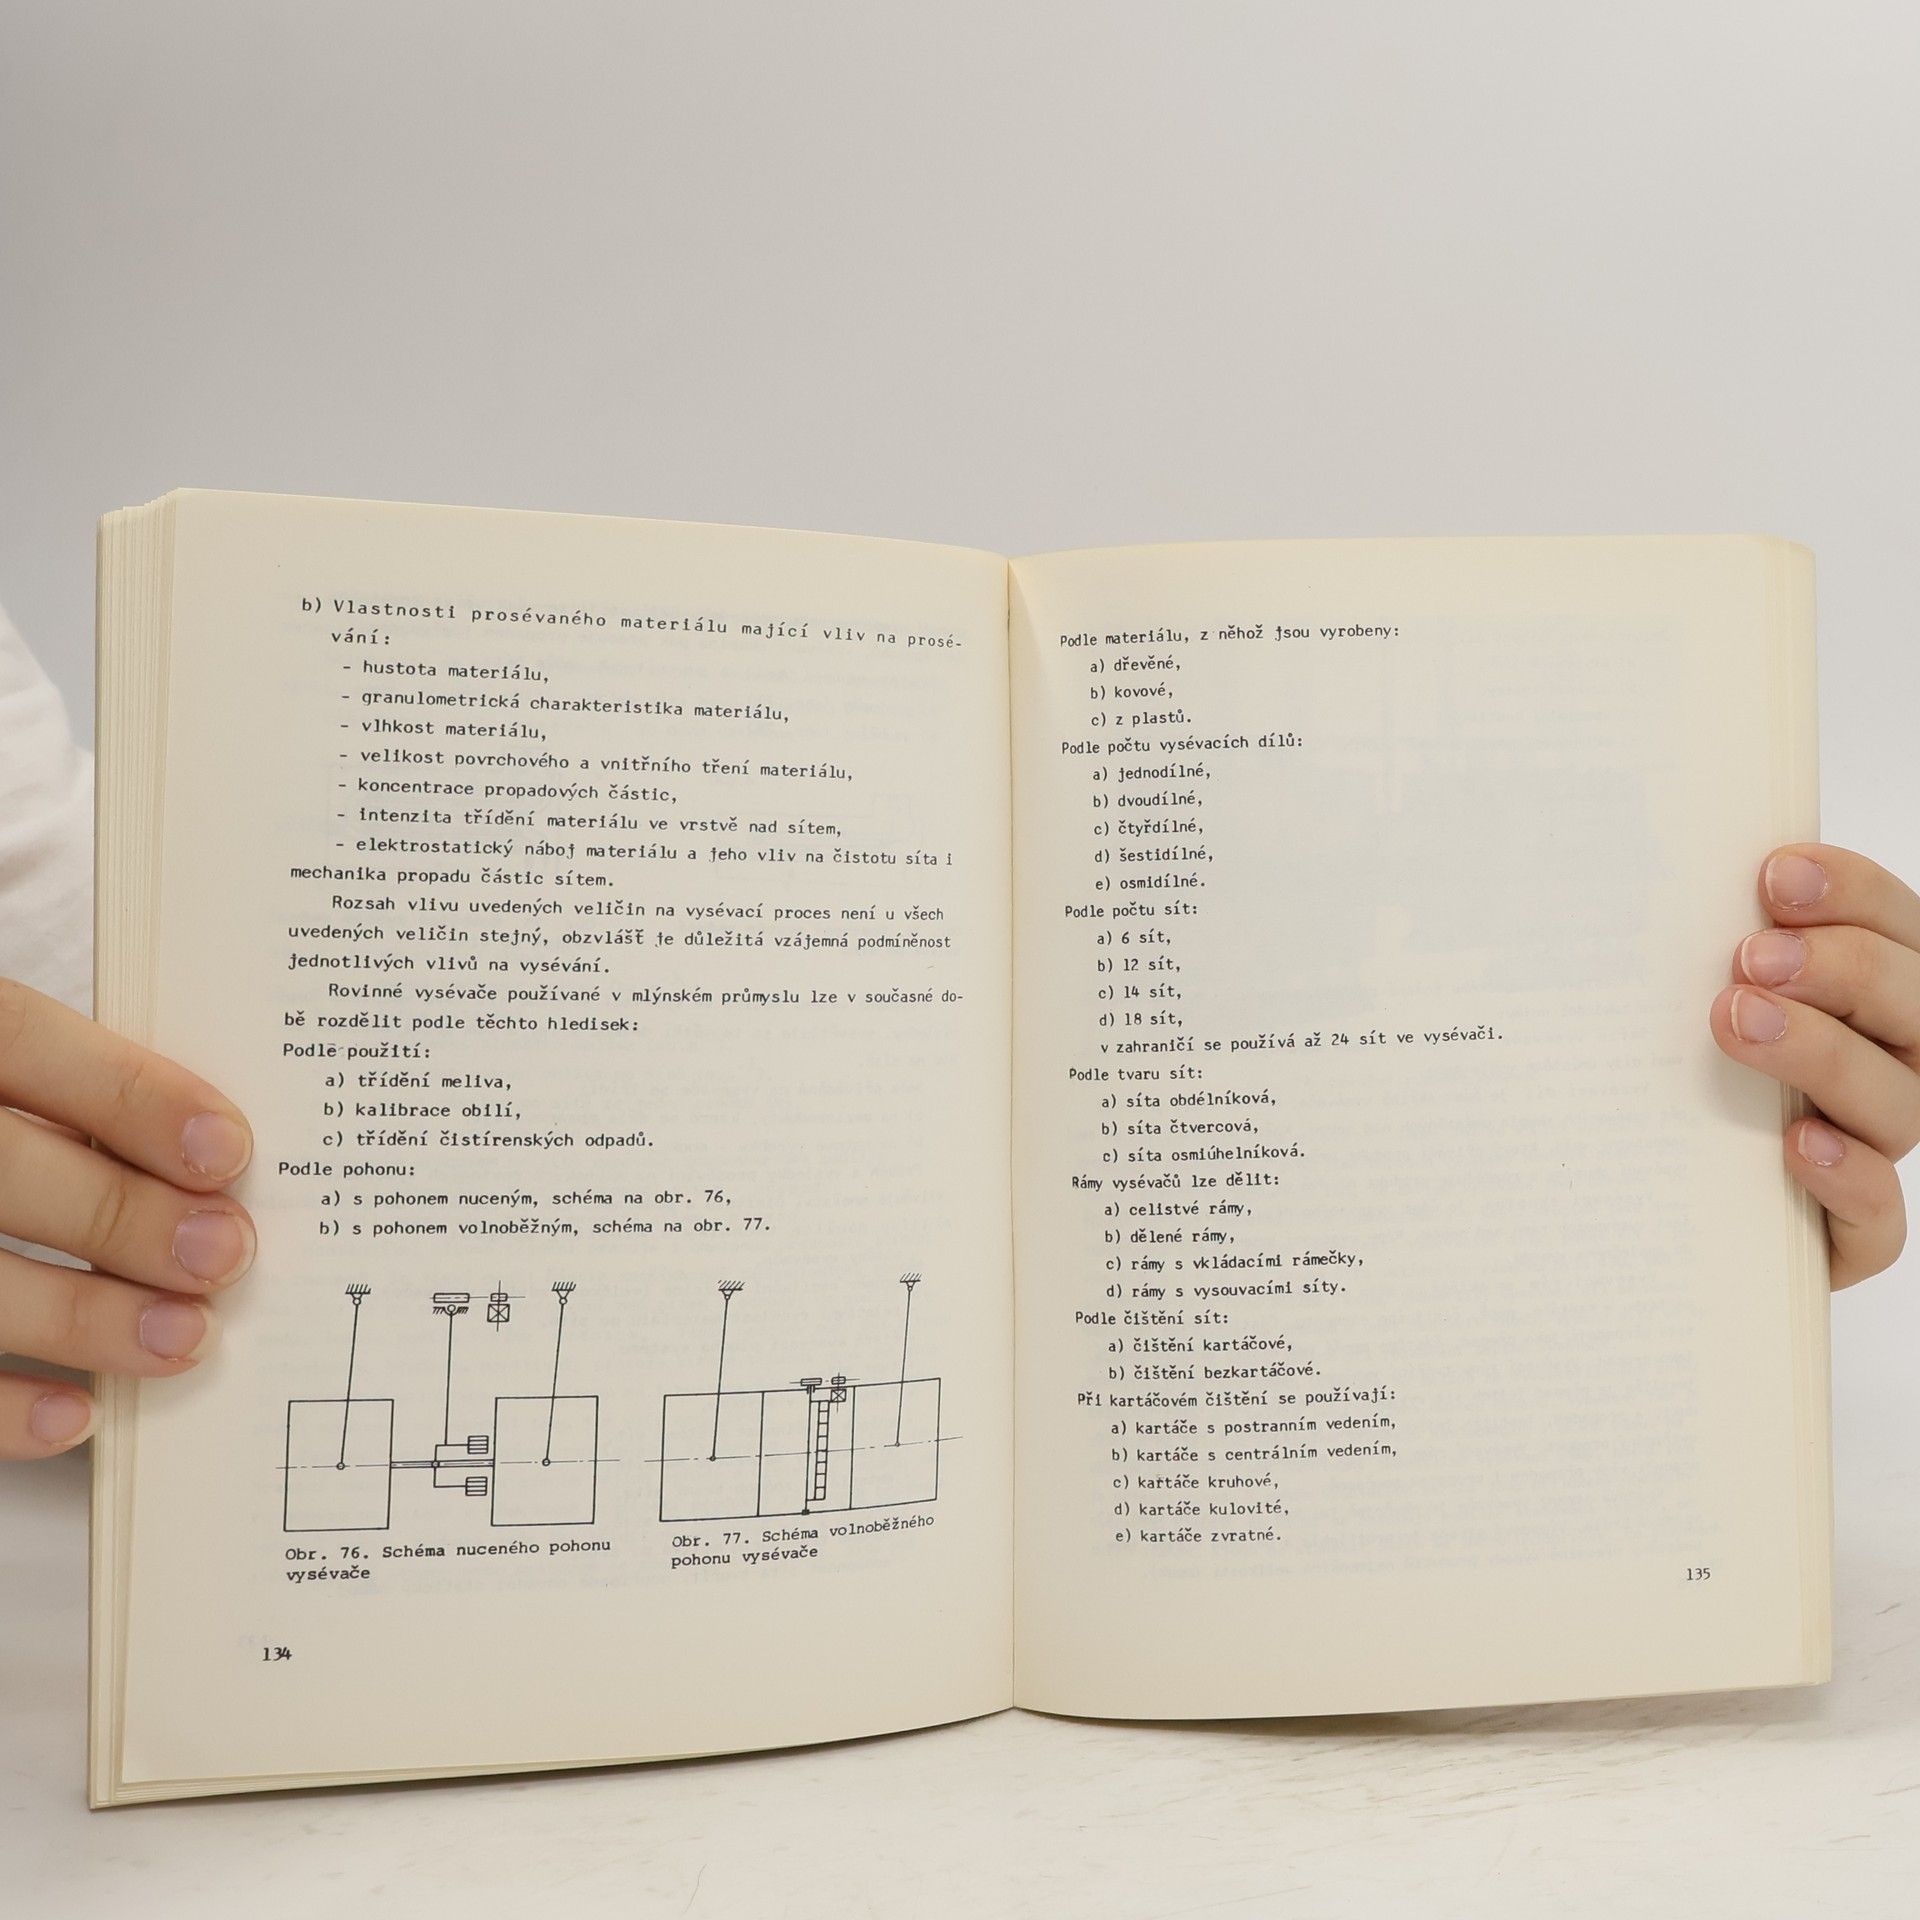 b) Vlastnosti prosévaného materiálu mající vliv na prosé-
vání:
- hustota materiálu,
- granulometrická charakteristika materiálu,
- vlhkost materiálu,
- velikost povrchového a vnitřního tření materiálu,
- koncentrace propadových částic,
- intenzita třídění materiálu ve vrstvě nad sítem,
- elektrostatický náboj materiálu a jeho vliv na čistotu síta i
mechanika propadu částic sítem.
Rozsah vlivu uvedených veličin na vysévací proces není u všech
uvedených veličin stejný, obzvlášť je důležitá vzájemná podmíněnost
jednotlivých vlivů na vysévání.
Rovinné vysévače používané v mlýnském průmyslu lze v současné do-
bě rozdělit podle těchto hledisek:
Podle použití:
a) třídění meliva,
b) kalibrace obilí,
c) třídění čistírenských odpadů.
Podle pohonu:
a) s pohonem nuceným, schéma na obr. 76,
b) s pohonem volnoběžným, schéma na obr. 77.
Obr. 76. Schéma nuceného pohonu
vysévače
Obr. 77. Schéma volnoběžného
pohonu vysévače
134
Podle materiálu, z něhož jsou vyrobeny:
a) dřevěné,
b) kovové,
c) z plastů.
Podle počtu vysévacích dílů:
a) jednodílné,
b) dvoudílné,
c) čtyřdílné,
d) šestidílné,
e) osmidílné.
Podle počtu sít:
a) 6 sít,
b) 12 sít,
c) 14 sít,
d) 18 sít,
v zahraničí se používá až 24 sít ve vysévači.
Podle tvaru sít:
a) síta obdélníková,
b) síta čtvercová,
c) síta osmiúhelníková.
Rámy vysévačů lze dělit:
a) celistvé rámy,
b) dělené rámy,
c) rámy s vkládacími rámečky,
d) rámy s vysouvacími síty.
Podle čištění sít:
a) čištění kartáčové,
b) čištění bezkartáčové.
Při kartáčovém čištění se používají:
a) kartáče s postranním vedením,
b) kartáče s centrálním vedením,
c) kartáče kruhové,
d) kartáče kulovité,
e) kartáče zvratné.
135